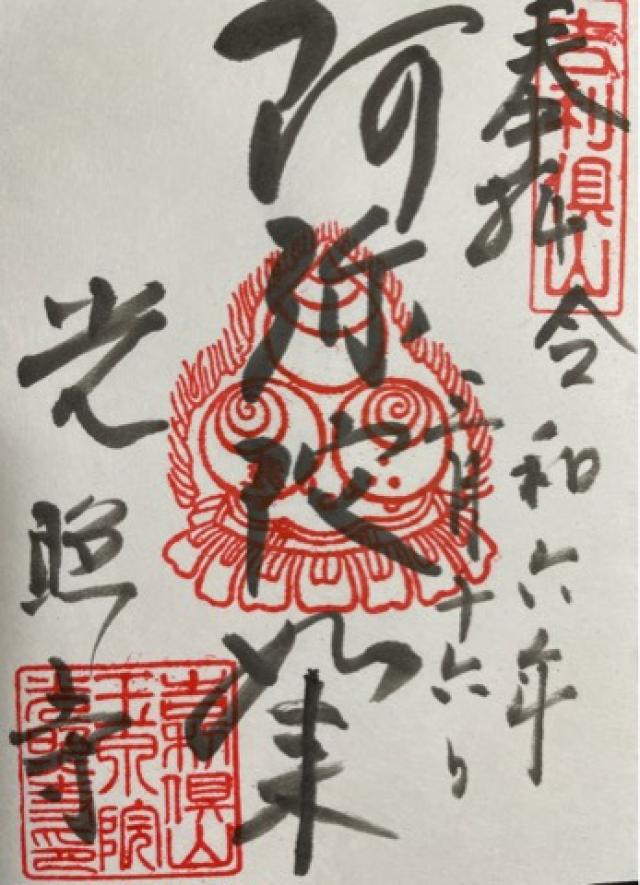 吉利倶山
奉拝
令和六年
三月十六日
阿弥陀如来
光照寺
吉利倶山
玉泉院
光照寺印